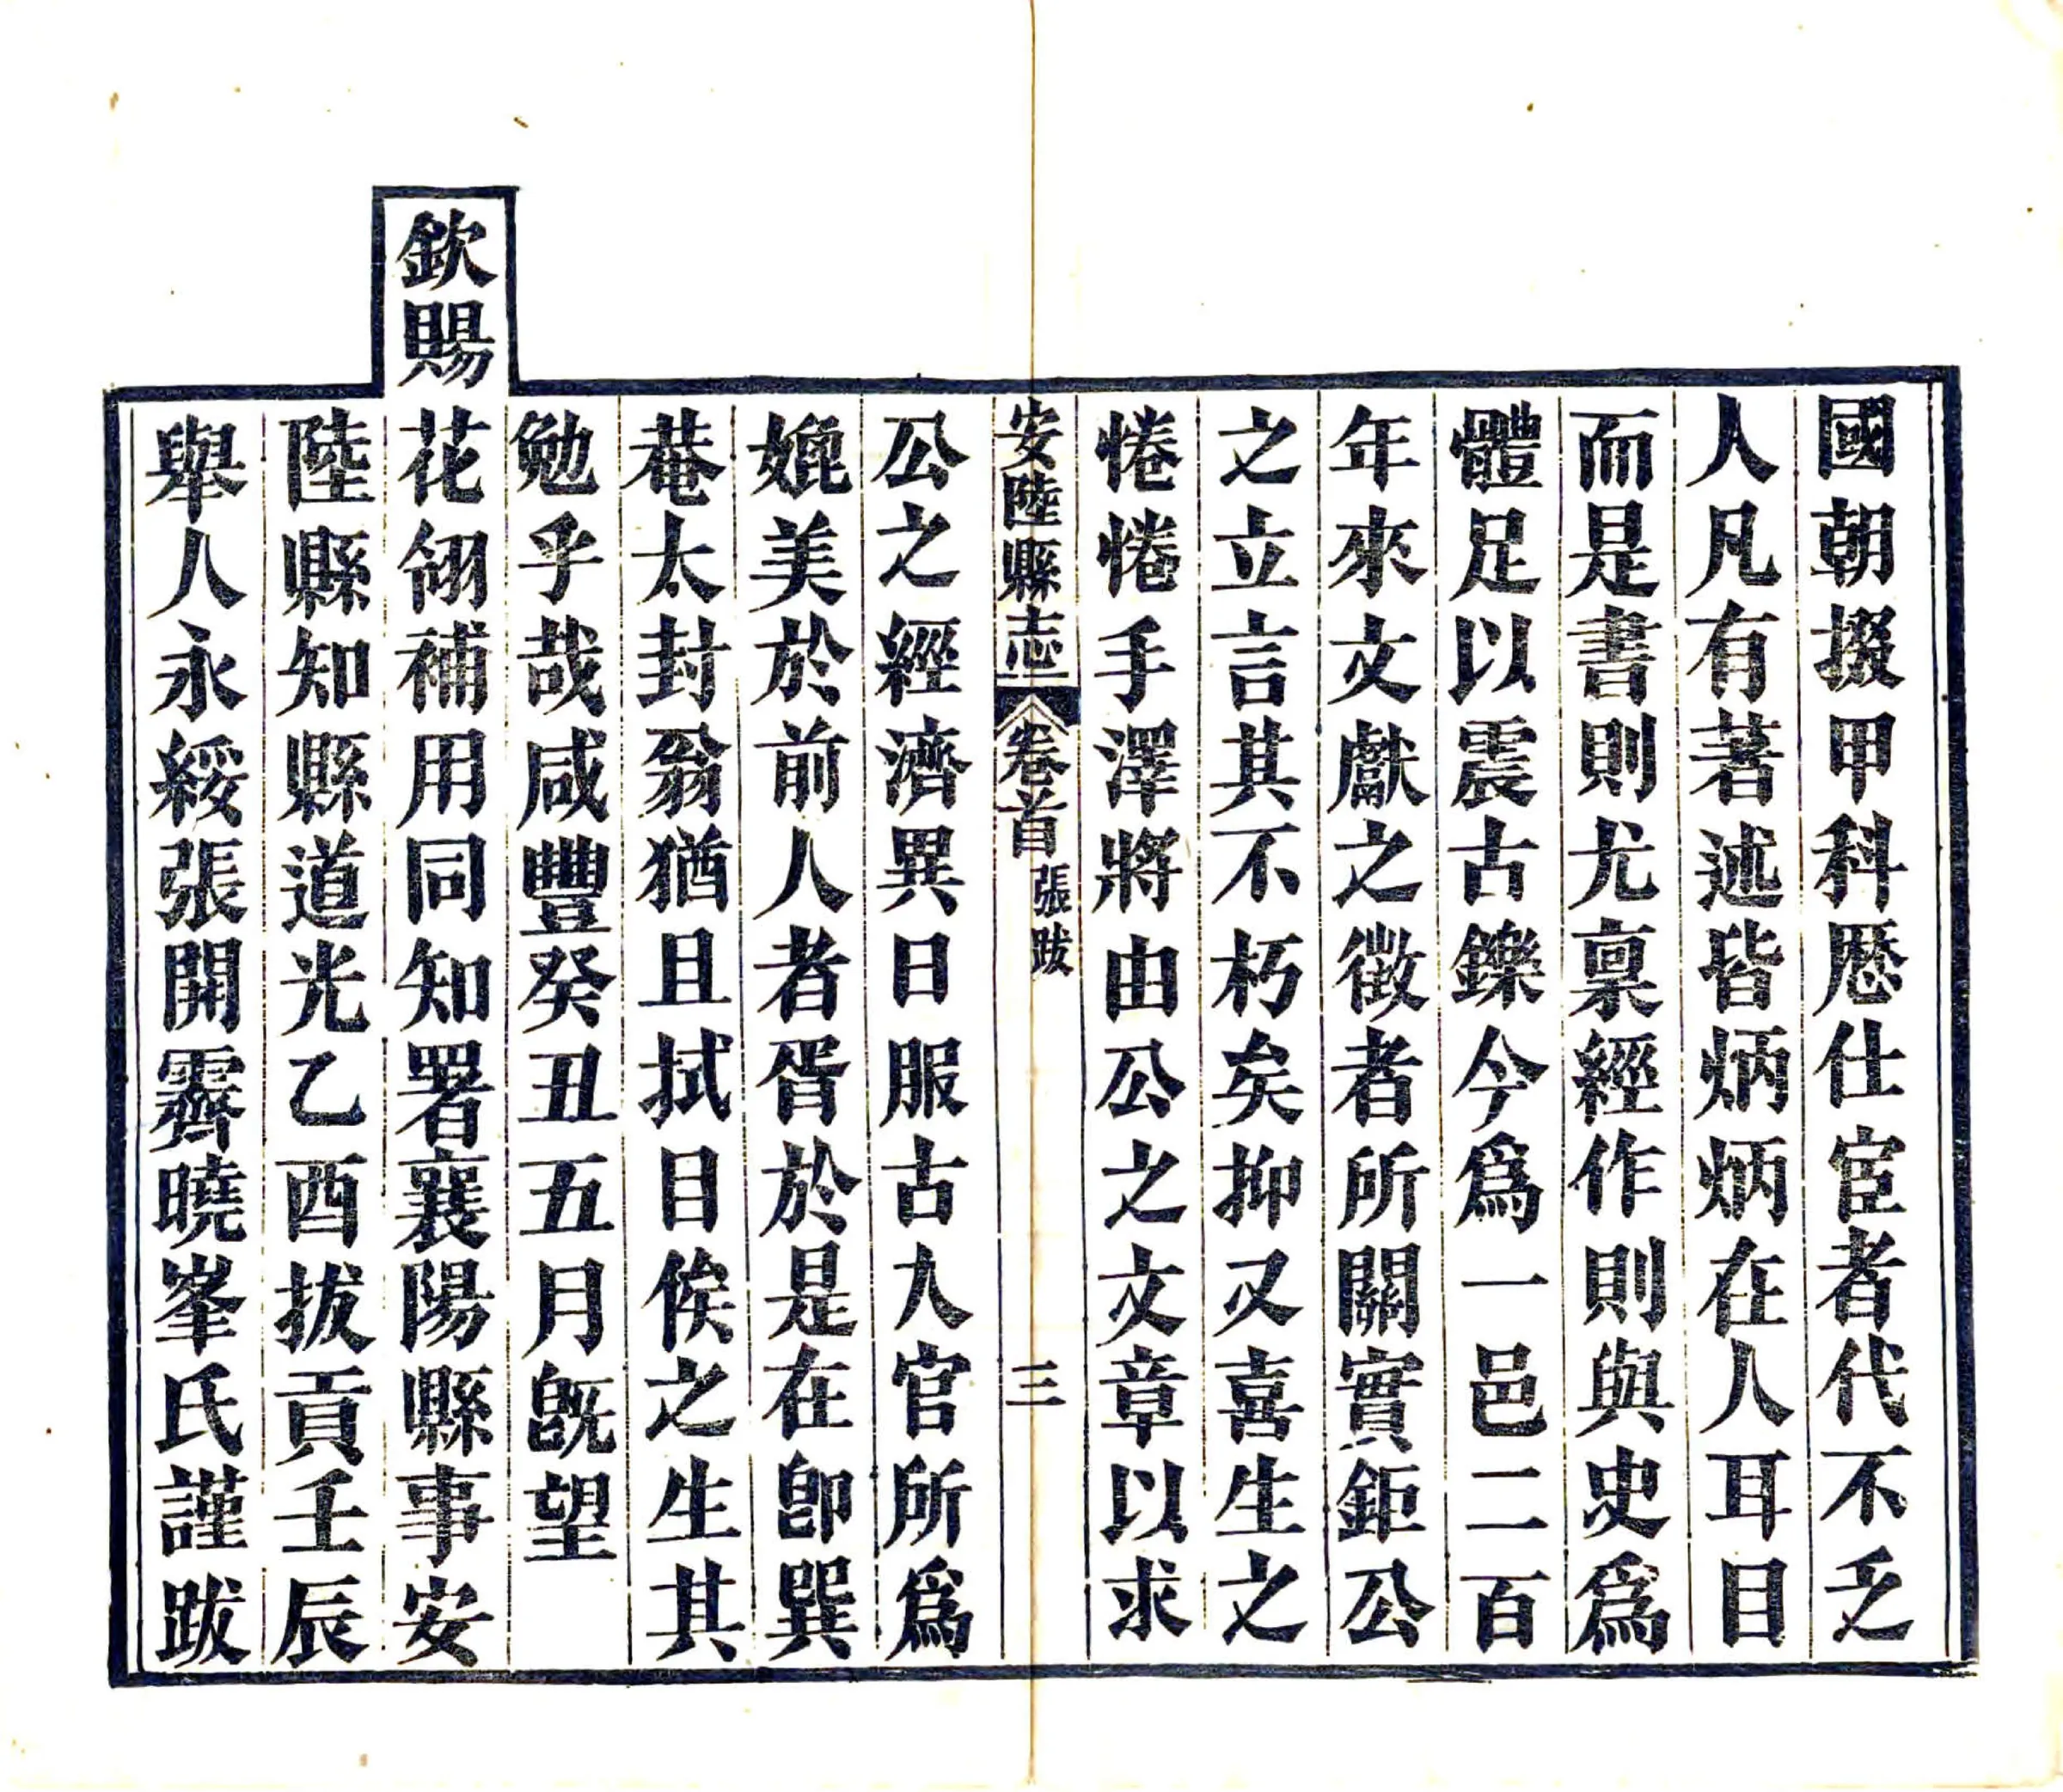 國朝掇甲科歴仕宦者代不乏
人凡有著述皆炳炳在人耳目
而是書則尤禀經作則與史爲
體足以震古鑠今爲一邑二百
年來文獻之徵者所關實鉅公
之立言其不朽矣抑又喜生之
惓惓手澤將由公之文章以求
安陸縣志 卷首 張跋 三
公之經濟異日服古人官所爲
媲美於前人者胥於是在卽巽
菴太封翁猶且拭目俟之生其
勉乎哉咸豐癸丑五月旣望
欽賜花翎補用同知署襄陽縣事安
陸縣知縣道光乙酉拔貢壬辰
舉人永綏張開霽曉峯氏謹跋